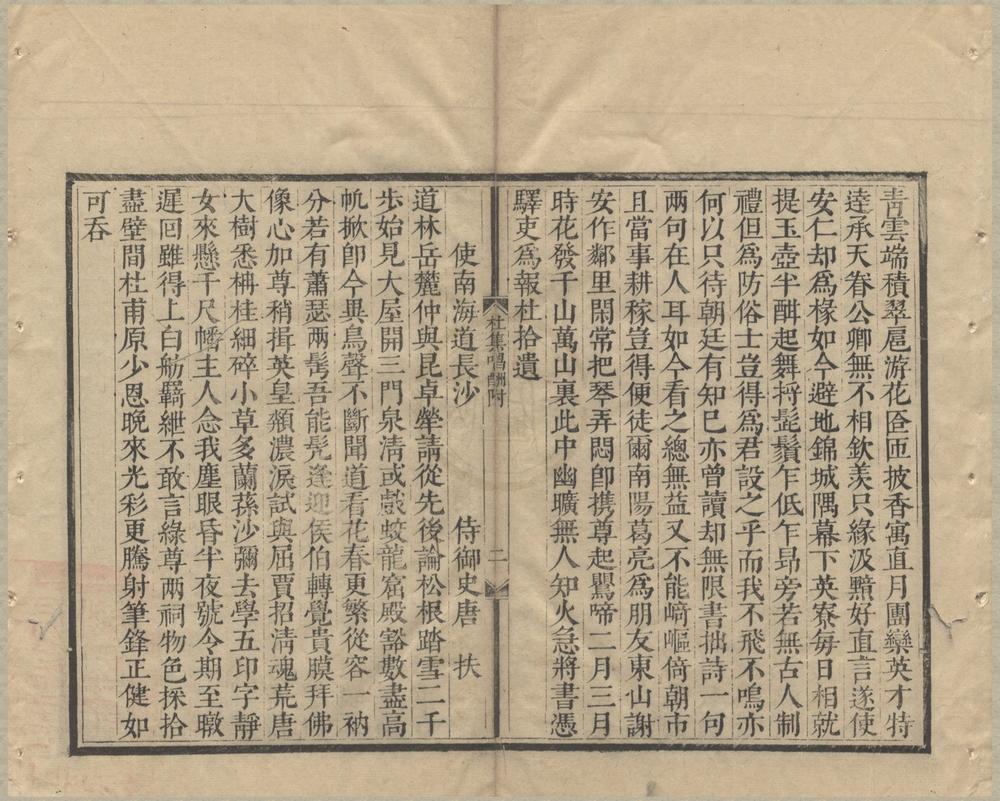 青雲端積翠扈游花匼匝披香寓直月團欒英才特
達承天眷公卿無不相欽羨只緣汲黯好直言遂使
安仁却爲椽如今避地錦城隅幕下英寮每日相就
提玉壺半酣起舞捋髭鬚乍低乍昂旁若無古人制
禮但爲防俗士豈得爲君設之乎而我不飛不鳴亦
何以只待朝廷有知己亦曾讀却無限書拙詩一句
两句在人耳如今看之總無益又不能崎嶇倚朝市
且當事耕稼豈得便徒爾南陽葛亮爲朋友東山謝
安作鄰里閑常把琴弄悶卽携尊起鸎啼二月三月
時花發千山萬山裏此中幽曠無人知火急將書憑
驛吏爲報杜拾遺
杜集唱酬附
二
使南海道長沙 侍御史唐 扶
道林岳麓仲與昆卓犖請從先後論松根踏雪二千
歩始見大屋開三門泉淸或戲蛟龍窟殿豁數盡高
帆掀卽今異鳥聲不斷聞道看花春更繁從容一衲
分若有蕭瑟兩髩吾能髠逢迎侯伯轉覺貴膜拜佛
像心加尊稍揖英皇纇濃淚試與屈賈招淸魂荒唐
大樹悉柟桂細碎小草多蘭蓀沙彌去學五印字靜
女來懸千尺幡主人念我塵眼昏半夜號令期至暾
遲回雖得上白舫羈紲不敢言綠尊两祠物色採拾
盡壁間杜甫原少恩晚來光彩更騰射筆鋒正健如
可吞